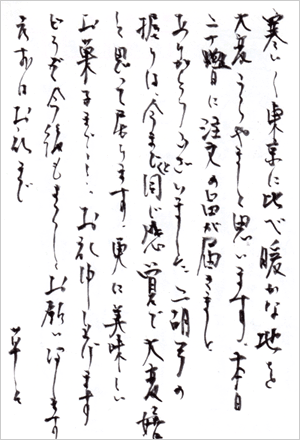 寒い東京に比べ暖かな地を
大変うらやましく思います。本日
二个口に注文の品が届きました
ありがとうございました。二胡弓の
握りは、今までと同じ感覚で大変嬉
しく思って居ります。更に美味しい
お菓子まで、お礼申し上げます
どうぞ今後もよろしくお願い致します
まずはお礼まで
草々